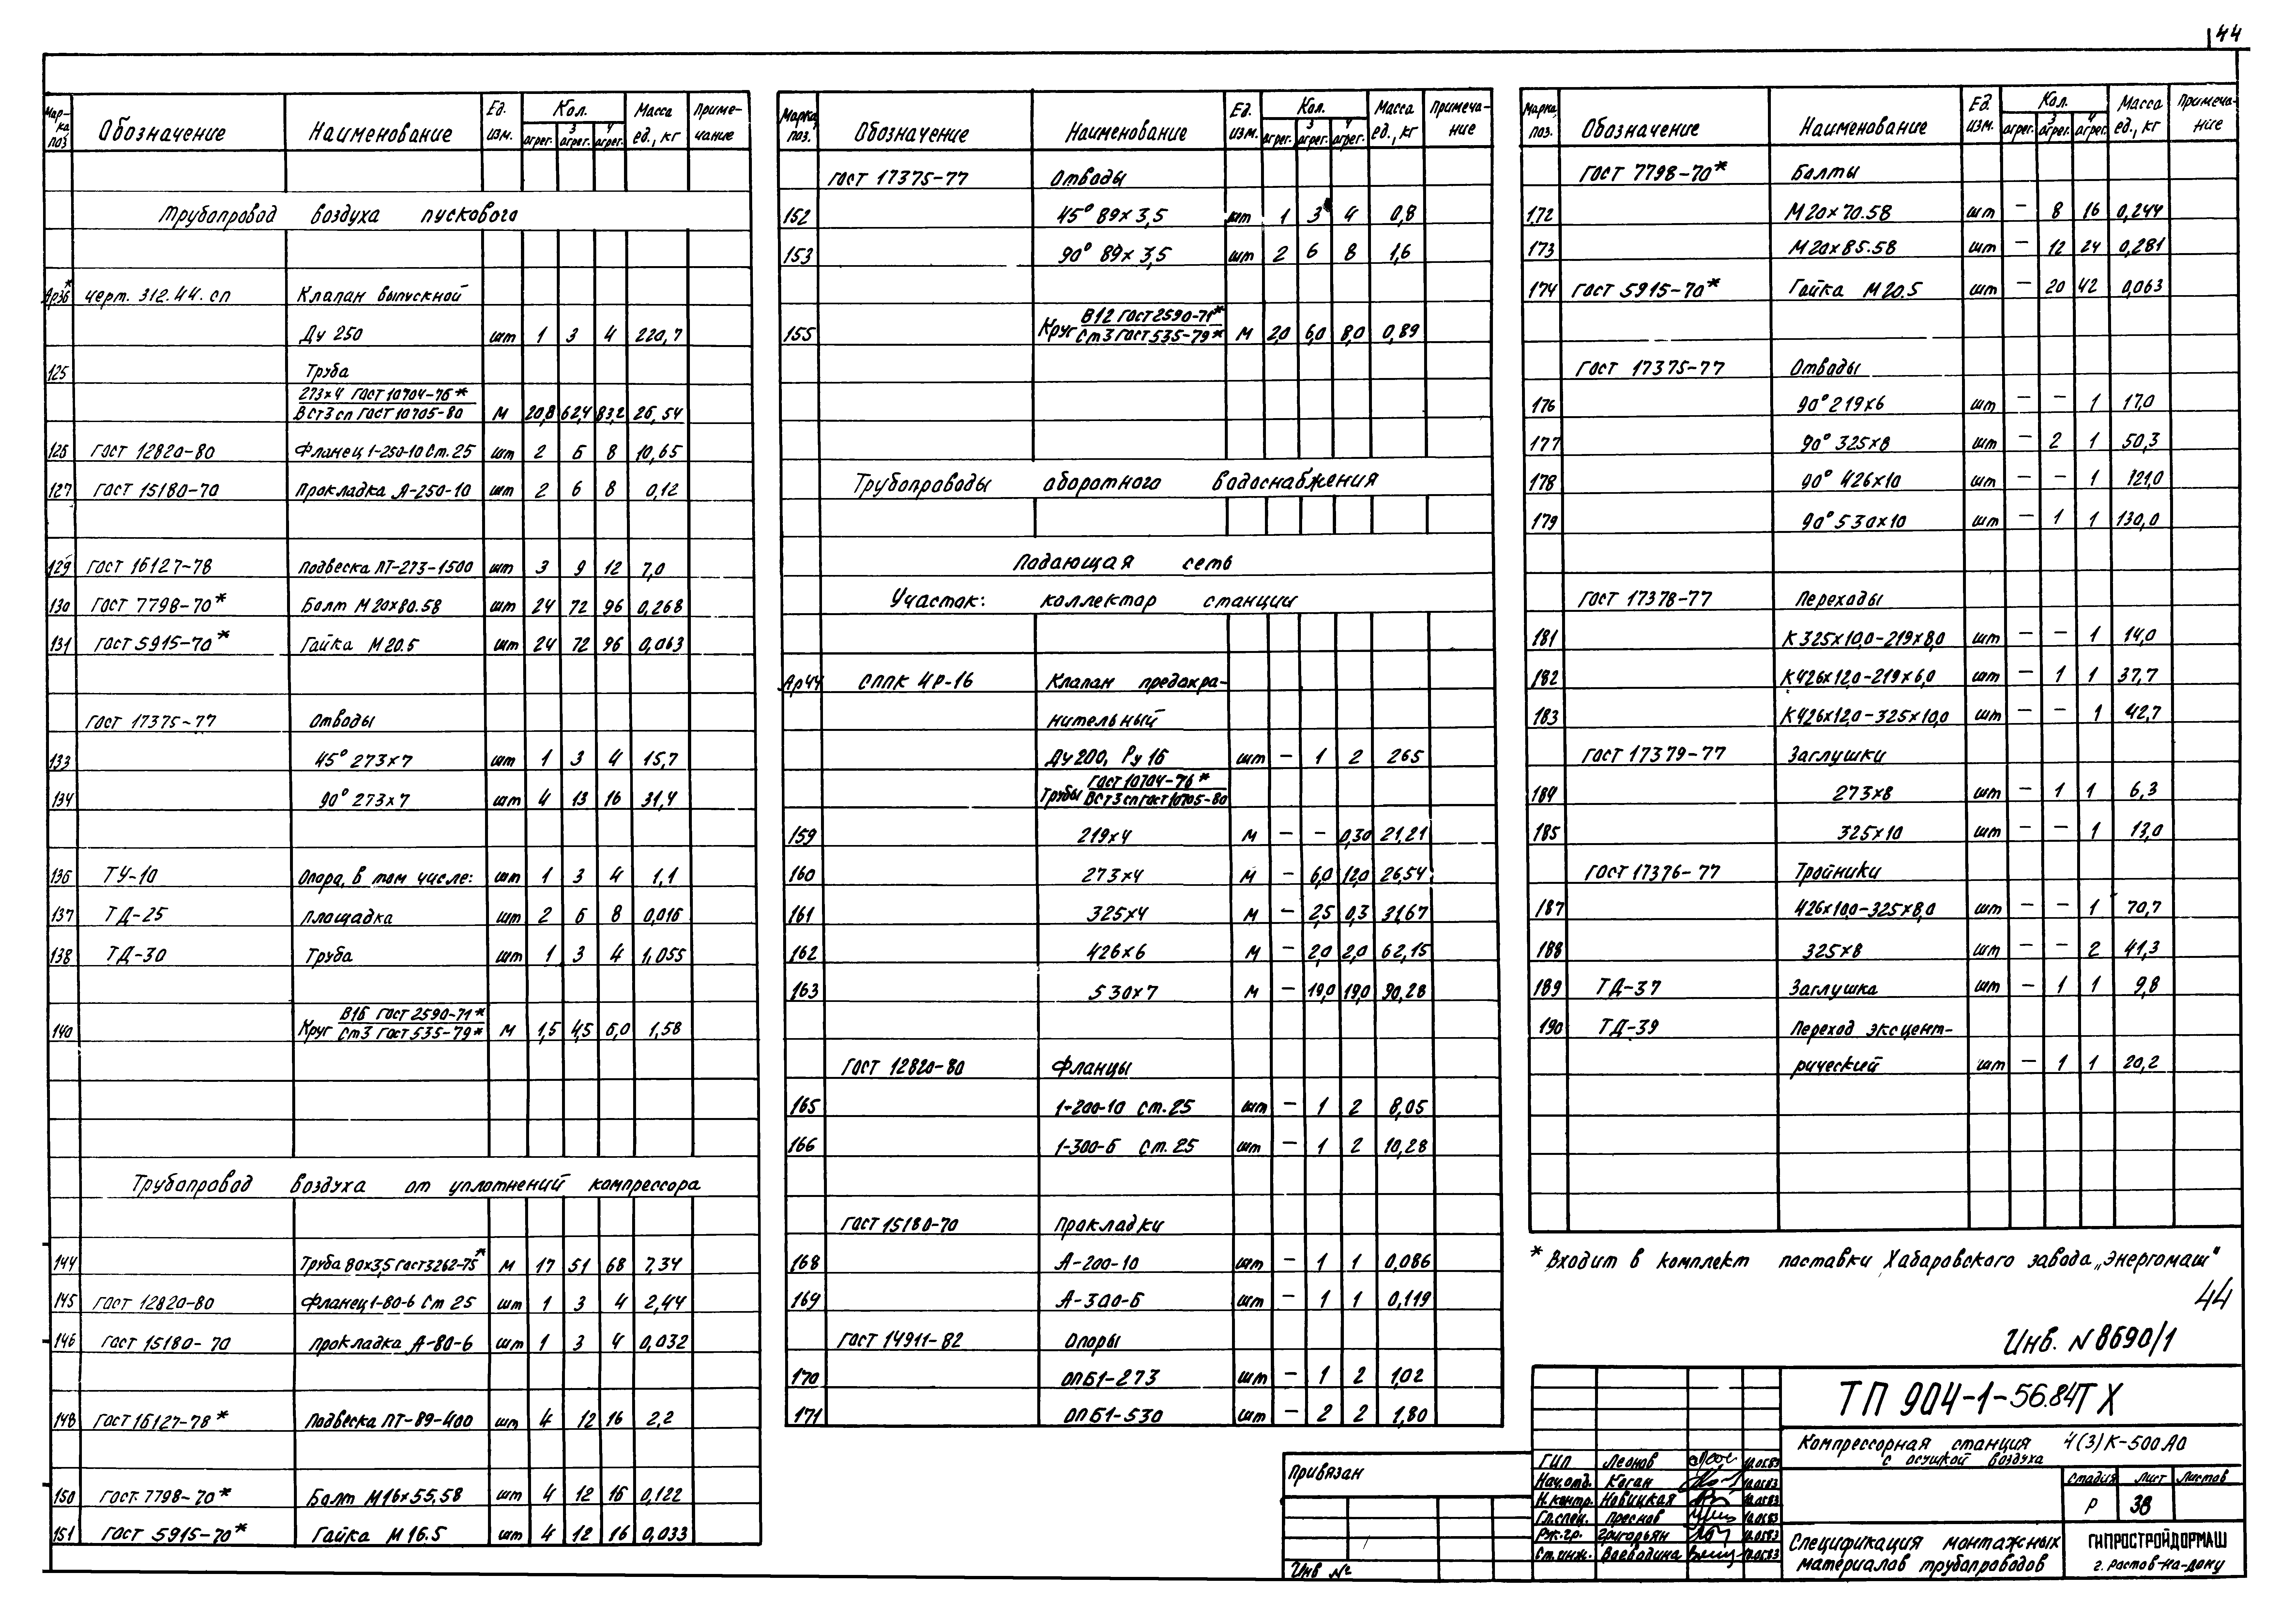 44
Марка поз. Обозначение Наименование Ед. изм. Кол. агрег. 3 агрег. 4 агрег. Масса ед., кг Приме-чание
Трубопровод воздуха пускового
Ар36* черт. 312.44.сп Клапан выпускной
Ду 250 шт 1 3 4 220,7
125 Труба
273х4 ГОСТ 10704-76*
ВСт3сп ГОСТ 10705-80 М 20,8 62,4 83,2 26,54
126 ГОСТ 12820-80 Фланец 1-250-10 Ст.25 шт 2 6 8 10,65
127 ГОСТ 15180-70 Прокладка А-250-10 шт 2 6 8 0,12
129 ГОСТ 16127-78 Подвеска ПТ-273-1500 шт 3 9 12 7,0
130 ГОСТ 7798-70* Болт М20х80.58 шт 24 72 96 0,268
131 ГОСТ 5915-70* Гайка М20.5 шт 24 72 96 0,063
ГОСТ 17375-77 Отводы
133 45° 273х7 шт 1 3 4 15,7
134 90° 273х7 шт 4 13 16 31,4
136 ТУ-10 Опора, в том числе: шт 1 3 4 1,1
137 ТД-25 площадка шт 2 6 8 0,016
138 ТД-30 Труба шт 1 3 4 1,055
140 Круг В16 ГОСТ 2590-71*
Ст3 ГОСТ 535-79* М 1,5 4,5 6,0 1,58
Трубопровод воздуха от уплотнений компрессора
144 Труба 80х3,5 ГОСТ 3262-75* М 17 51 68 7,34
145 ГОСТ 12820-80 Фланец 1-80-6 Ст 25 шт 1 3 4 2,44
146 ГОСТ 15180-70 Прокладка А-80-6 шт 1 3 4 0,032
148 ГОСТ 16127-78* Подвеска ПТ-89-400 шт 4 12 16 2,2
150 ГОСТ 7798-70* Болт М16х55.58 шт 4 12 16 0,122
151 ГОСТ 5915-70* Гайка М16.5 шт 4 12 16 0,033
Марка, поз. Обозначение Наименование Ед. изм. Кол. агрег. 3 агрег. 4 агрег. Масса ед., кг Примеча-ние
ГОСТ 17375-77 Отводы
152 45° 89х3,5 шт 1 3 4 0,8
153 90° 89х3,5 шт 2 6 8 1,6
155 Круг В12 ГОСТ 2590-71*
Ст3 ГОСТ 535-79* М 2,0 6,0 8,0 0,89
Трубопроводы оборотного водоснабжения
Подающая сеть
Участок: коллектор станции
Ар44 СППК 4Р-16 Клапан предохра-
нительный
Ду 200, Ру 16 шт – 1 2 265
Трубы ГОСТ 10704-76*
ВСт3сп ГОСТ 10705-80
159 219х4 М – – 0,30 21,21
160 273х4 М – 6,0 12,0 26,54
161 325х4 М – 2,5 0,3 31,67
162 426х6 М – 2,0 2,0 62,15
163 530х7 М – 19,0 19,0 90,28
ГОСТ 12820-80 Фланцы
165 1-200-10 ст.25 шт – 1 2 8,05
166 1-300-6 Ст.25 шт – 1 2 10,28
ГОСТ 15180-70 Прокладки
168 А-200-10 шт – 1 1 0,086
169 А-300-6 шт – 1 1 0,119
ГОСТ 14911-82 Опоры
170 ОПБ1-273 шт – 1 2 1,02
171 ОПБ1-530 шт – 2 2 1,80
Марка, поз. Обозначение Наименование Ед. изм. Кол. агрег. 3 агрег. 4 агрег. Масса ед., кг Примеча-ние
ГОСТ 7798-70* Болты
172 М20х70.58 шт – 8 16 0,244
173 М20х85.58 шт – 12 24 0,281
174 ГОСТ 5915-70* Гайка М20.5 шт – 20 42 0,063
ГОСТ 17375-77 Отводы
176 90° 219х6 шт – – 1 17,0
177 90° 325х8 шт – 2 1 50,3
178 90° 426х10 шт – – 1 121,0
179 90° 530х10 шт – 1 1 130,0
ГОСТ 17378-77 Переходы
181 К 325х10,0-219х8,0 шт – – 1 14,0
182 К426х12,0-219х6,0 шт – 1 1 37,7
183 К426х12,0-325х10,0 шт – – 1 42,7
ГОСТ 17379-77 Заглушки
184 273х8 шт – 1 1 6,3
185 325х10 шт – – 1 13,0
ГОСТ 17376-77 Тройники
187 426х10,0-325х8,0 шт – – 1 70,7
188 325х8 шт – – 2 41,3
189 ТД-37 Заглушка шт – 1 1 9,8
190 ТД-39 Переход эксцент-
рический шт – 1 1 20,2
* Входит в комплект поставки Хабаровского завода „Энергомаш"
44
Инв. N 8690/1
Привязан
Инв №
ГИП Леонов 10.05.83
Нач.отд. Коган 10.05.83
Н.контр. Новицкая 10.05.83
Гл.спец. Преснов 10.05.83
Рук.гр. Григорьян 10.05.83
Ст.инж. Воеводина 10.05.83
ТП 904-1-56.84 ТХ
Компрессорная станция 4(3)К-500АО
с осушкой воздуха
Стадия Лист Листов
Р 38
Спецификация монтажных
материалов трубопроводов
ГИПРОСТРОЙДОРМАШ
г. Ростов-на-Дону